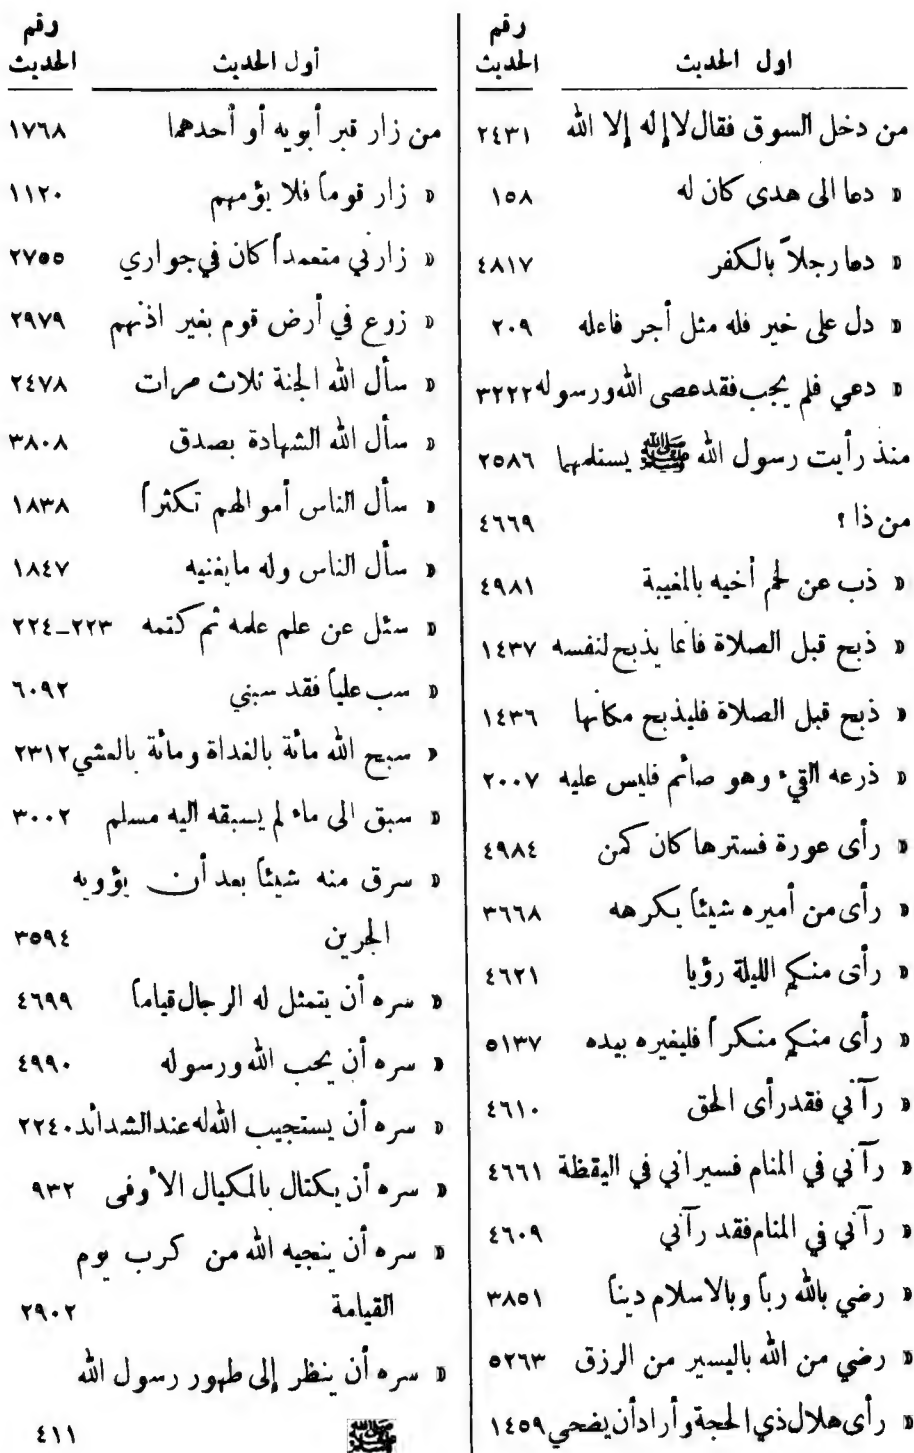 اول الحديث رقم الحديث
من دخل السوق فقال لا إله إلا الله ٢٤٣١
« دعا الى هدى كان له ١٥٨
« دعا رجلاً بالكفر ٤٨١٧
« دل على خير فله مثل أجر فاعله ٢٠٩
« دعي فلم يجب فقد عصى الله ورسوله ٣٢٢٢
منذ رأيت رسول الله ﷺ يستلمهما ٢٥٨٦
من ذا ؟ ٤٦٦٩
« ذب عن لحم أخيه بالمغيبة ٤٩٨١
« ذبح قبل الصلاة فانما يذبح لنفسه ١٤٣٧
« ذبح قبل الصلاة فليذبح مكانها ١٤٣٦
« ذرعه القيء وهو صائم فليس عليه ٢٠٠٧
« رأى عورة فسترها كان كمن ٤٩٨٤
« رأى من أميره شيئاً يكرهه ٣٦٦٨
« رأى منكم الليلة رؤيا ٤٦٢١
« رأى منكم منكراً فليغيره بيده ٥١٣٧
« رآني فقد رأى الحق ٤٦١٠
« رآني في المنام فسيراني في اليقظة ٤٦٦١
« رآني في المنام فقد رآني ٤٦٠٩
« رضي بالله رباً وبالاسلام ديناً ٣٨٥١
« رضي من الله باليسير من الرزق ٥٢٦٣
« رأى هلال ذي الحجة وأراد أن يضحي ١٤٥٩
أول الحديث رقم الحديث
من زار قبر أبويه أو أحدهما ١٧٦٨
« زار قوماً فلا يؤمهم ١١٢٠
« زارني متعمداً كان في جواري ٢٧٥٥
« زرع في أرض قوم بغير اذنهم ٢٩٧٩
« سأل الله الجنة ثلاث مرات ٢٤٧٨
« سأل الله الشهادة بصدق ٣٨٠٨
« سأل الناس أموالهم تكثراً ١٨٣٨
« سأل الناس وله ما يغنيه ١٨٤٧
« سئل عن علم علمه ثم كتمه ٢٢٣-٢٢٤
« سب علياً فقد سبني ٦٠٩٢
« سبح الله مائة بالغداة ومائة بالعشي ٢٣١٢
« سبق الى ماء لم يسبقه اليه مسلم ٣٠٠٢
« سرق منه شيئاً بعد أن يؤويه
الجرين ٣٥٩٤
« سره أن يتمثل له الرجال قياماً ٤٦٩٩
« سره أن يحب الله ورسوله ٤٩٩٠
« سره أن يستجيب الله له عند الشدائد ٢٢٤٠
« سره أن يكتال بالمكيال الأوفى ٩٣٢
« سره أن ينجيه الله من كرب يوم
القيامة ٢٩٠٢
« سره أن ينظر إلى طهور رسول الله
ﷺ ٤١١